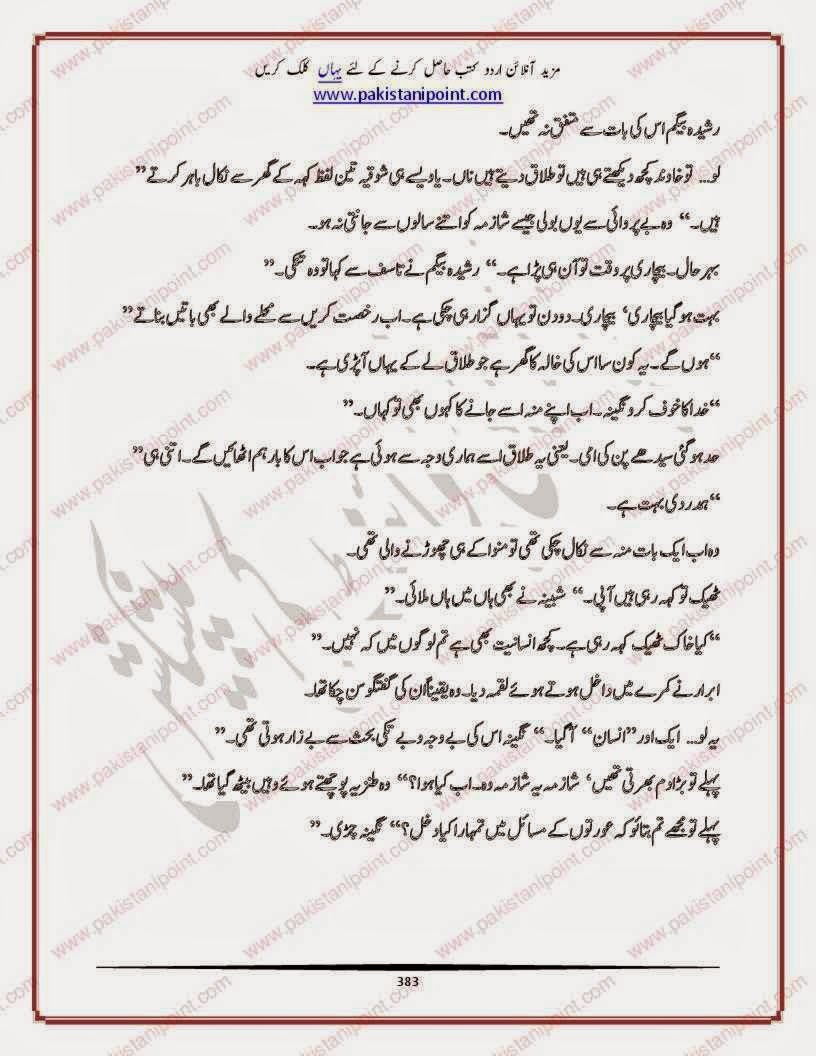 مزید آنلائن اردو کتب حاصل کرنے کے لئے یہاں کلک کریں
www.pakistanipoint.com
رشیدہ بیگم اس کی بات سے متفق نہ تھیں۔
لو... تو خاوند کچھ دیکھتے ہی ہیں تو طلاق دیتے ہیں ناں۔ یا ویسے ہی شوقیہ تین لفظ کہہ کے گھر سے نکال باہر کرتے”
ہیں۔“ وہ بے پروائی سے یوں بولی جیسے شازمہ کو اتنے سالوں سے جانتی نہ ہو۔
بہر حال۔ بیچاری پر وقت تو آن ہی پڑا ہے۔“ رشیدہ بیگم نے تاسف سے کہا تو وہ تنکی۔”
بہت ہو گیا بیچاری‘ بیچاری۔ دو دن تو یہاں گزار ہی چکی ہے۔ اب رخصت کریں سے محلے والے بھی باتیں بناتے”
“ہوں گے۔ یہ کون سا اس کی خالہ کا گھر ہے جو طلاق لے کے یہاں آ پڑی ہے۔
“خدا کا خوف کرو نگینہ۔ اب اپنے منہ اسے جانے کا کہوں بھی تو کہاں۔”
حد ہو گئی سیدھے پن کی امی۔ یعنی یہ طلاق اسے ہماری وجہ سے ہوئی ہے جو اب اس کا بار ہم اٹھائیں گے۔ اتنی ہی”
“ہمدردی بہت ہے۔
وہ اب ایک بات منہ سے نکال چکی تھی تو منوا کے ہی چھوڑنے والی تھی۔
ٹھیک تو کہہ رہی ہیں آپی۔“ شبینہ نے بھی ہاں میں ہاں ملائی۔”
“کیا خاک ٹھیک کہہ رہی ہے۔ کچھ انسانیت بھی ہے تم لوگوں میں کہ نہیں۔”
ابرار نے کمرے میں داخل ہوتے ہوئے لقمہ دیا۔ وہ یقیناً ان کی گفتگو سن چکا تھا۔
یہ لو... ایک اور ”انسان“ آگیا۔“ نگینہ اس کی بے وجہ و بے تکی بحث سے بے زار ہوتی تھی۔”
پہلے تو بڑا دم بھرتی تھیں‘ شازمہ یہ شازمہ وہ۔ اب کیا ہوا؟“ وہ طنزیہ پوچھتے ہوئے وہیں بیٹھ گیا تھا۔”
پہلے تو مجھے تم بتائو کہ عورتوں کے مسائل میں تمہارا کیا دخل؟“ نگینہ چڑی۔”
383